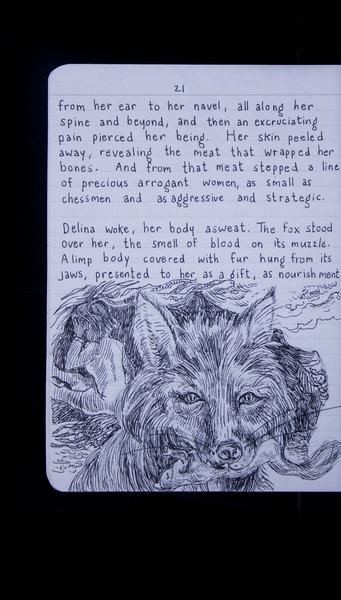 21
from her ear to her navel, all along her
spine and beyond, and then an excruciating
pain pierced her being. Her skin peeled
away, revealing the meat that wrapped her
bones. And from that meat stepped a line
of precious arrogant women, as small as
chessmen and as aggressive and strategic.
Delina woke, her body asweat. The fox stood
over her, the smell of blood on its muzzle.
A limp body covered with fur hung from its
jaws, presented to her as a gift, as nourishment